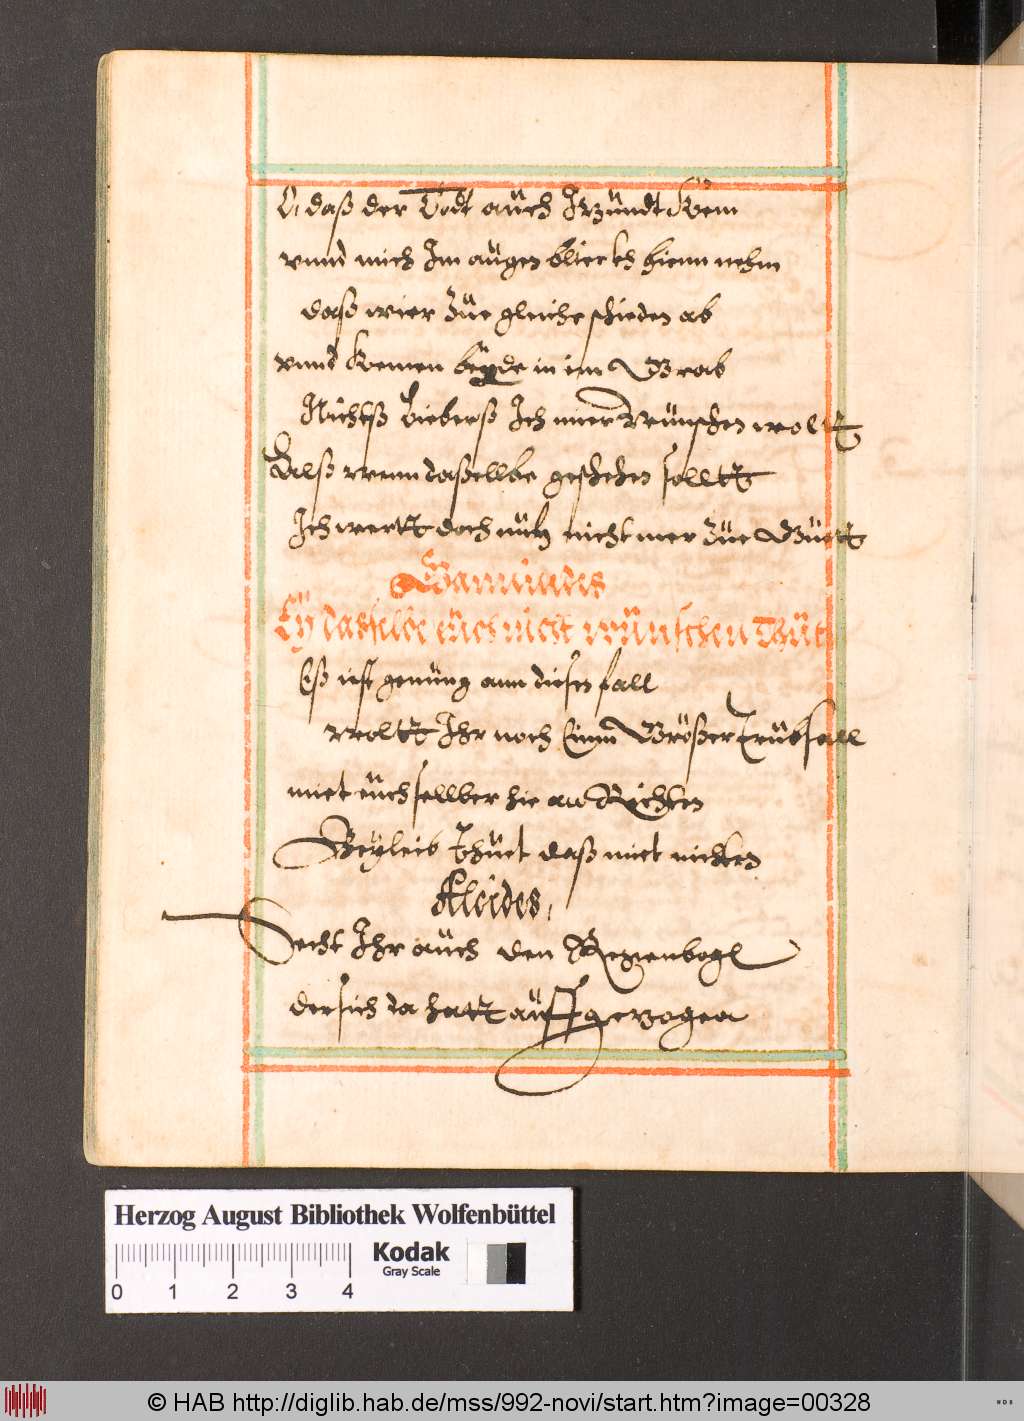 O daß der Todt auch Itzundt Kem
vnnd mich Im augen blickh hienn nehm
daß wier Züe gleiche schieden ab
vnnd Kemen beyde in im Grab
Nichtß Lieberß Ich mier Wünschen wolt
Alß wenn daßellbe geschehen solltt
Ich wertt doch nütz nicht mer Züe Güett
Ey dasselbe eüch nicht wünschen Thüt
Eß ist genüng ann diesen fall
woltt Ihr noch Einn Größer Trübsall
miet eüch sellber hie an Richten
Beyleib Thüet daß miet nichten
Alcides,
Secht Ihr auch den Regenbogl
der sich da hatt auff gezogen
Herzog August Bibliothek Wolfenbüttel
Kodak
Gray Scale
0 1 2 3 4
© HAB http://diglib.hab.de/mss/992-novi/start.htm?image=00328